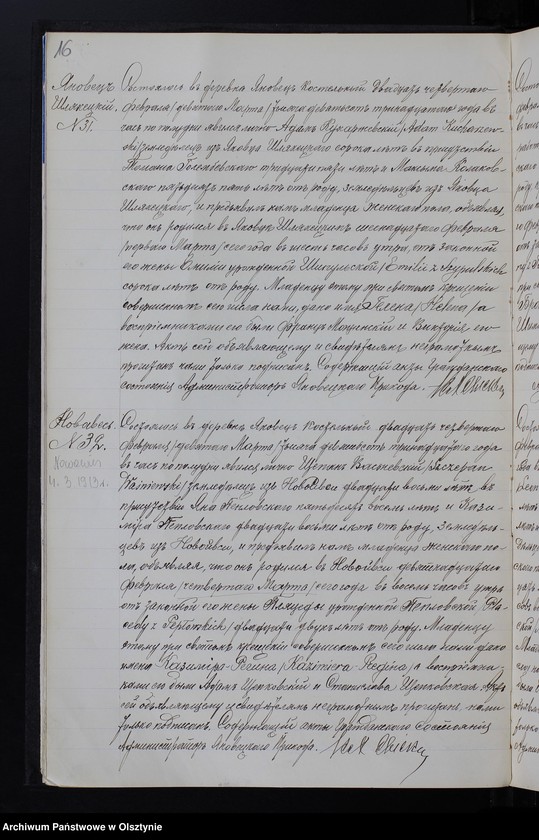 16
Яновецъ
Шляхецкій.
N 31.
Состоялось въ деревнѣ Яновецъ Костельный двадцать четвертаго
февраля /девятаго Марта/ тысяча девятьсотъ тринадцатаго года въ
часъ по полудни явился лично Адамъ /Adam
/земледѣлецъ изъ Яновца Шляхецкаго сорока лѣтъ въ присутствіи
Томаша тридцати лѣтъ и
пяти лѣтъ отъ роду, земледѣльцевъ изъ Яновца
Шляхецкаго, и предъявилъ намъ младенца женскаго пола, объявляя,
что онъ родился въ Яновцѣ Шляхецкимъ шестнадцатаго февраля
/перваго Марта/ сего года въ шесть часовъ утра, отъ законной
его жены Эмиліи урожденной /Emilii z
сорока лѣтъ отъ роду. Младенцу этому при святомъ крещеніи
совершенномъ сего числа нами, дано имя Гелена /Helena/ а
воспріемниками его были Францъ и его
жена. Актъ сей объявляющему и свидѣтелямъ неграмотнымъ
прочитанъ нами только подписанъ. Содержащій акты гражданскаго
состоянія Администраторъ Яновецкаго Прихода.
Новавесь.
N 32.
Nowawieś
4. 3 1913 r.
Состоялось въ деревнѣ Яновецъ Костельный двадцать четвертаго
февраля /девятаго Марта/ тысяча девятьсотъ тринадцатаго года
въ часъ по полудни явился лично Щепанъ /Szczepan
/земледѣлецъ изъ Новойвси двадцати восьми лѣтъ, въ
присутствіи Яна Пепловскаго пятьдесятъ восемь лѣтъ и Кази-
міра Пепловскаго двадцати восьми лѣтъ отъ роду, земледѣль-
цевъ изъ Новойвси, и предъявилъ намъ младенца женскаго по-
ла, объявляя, что онъ родился въ Новойвси девятнадцатаго
февраля /четвертаго Марта/ сего года въ восемь часовъ утра
отъ законной его жены Пляцеды урожденной Пепловской /Pla-
cedy z Pepłowskich/ двадцати двухъ лѣтъ отъ роду. Младенцу
этому при святомъ крещеніи совершенномъ сего числа нами дано
имена Казиміра-Регина /Kazimiera-Regina/, а воспріемни-
ками его были Адамъ и Станислава Актъ
сей объявляющему и свидѣтелямъ неграмотнымъ прочитанъ, нами
только подписанъ. Содержащій акты гражданскаго состоянія
Администраторъ Яновецкаго Прихода.
Archiwum Państwowe w Olsztynie